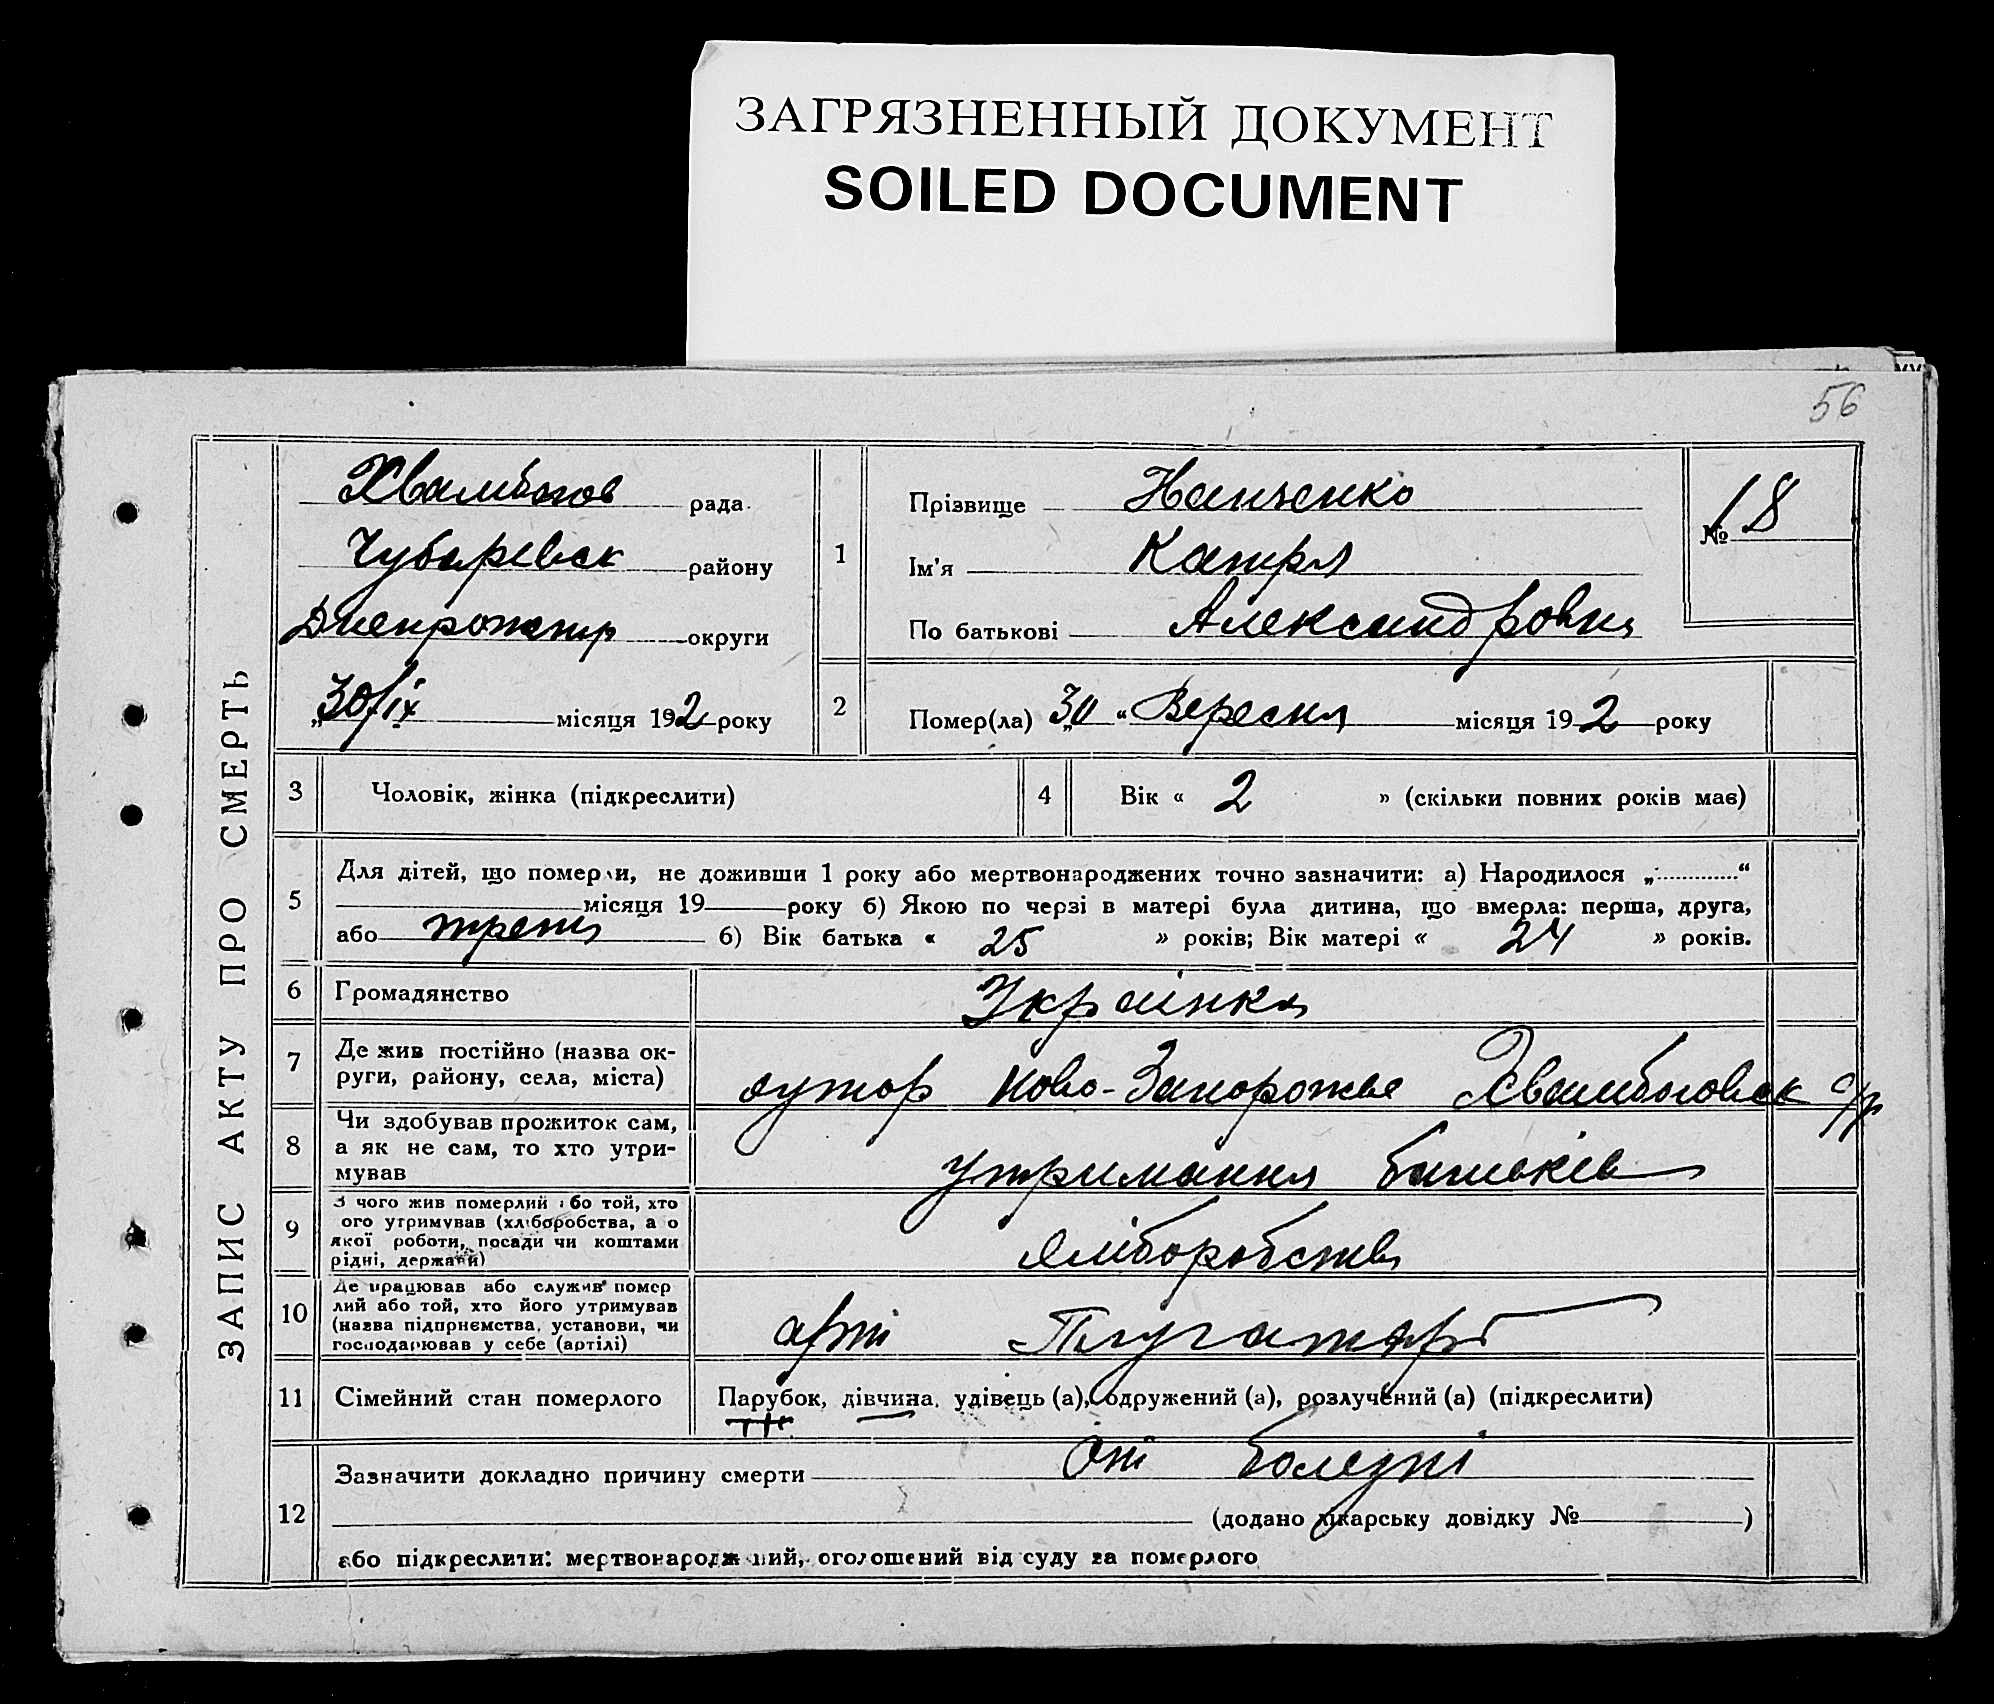 ЗАГРЯЗНЕННЫЙ ДОКУМЕНТ
SOILED DOCUMENT
56
ЗАПИС АКТУ ПРО СМЕРТЬ
рада
Чубаревск району
округи
„30/ix місяця 192 року
1
Прізвище
Ім'я Катря
По батькові Александровна
№ 18
2
Помер(ла) „30 “ Вересня місяця 192 року
3 Чоловік, жінка (підкреслити)
4 Вік « 2 » (скільки повних років має)
5
Для дітей, що померли, не доживши 1 року або мертвонароджених точно зазначити: а) Народилося „ “
місяця 19 року б) Якою по черзі в матері була дитина, що вмерла: перша, друга,
або третя б) Вік батька « 25 » років; Вік матері « 24 » років.
6 Громадянство Українка
7 Де жив постійно (назва ок-
руги, району, села, міста)
хутор Ново-Запорожье с/р
8 Чи здобував прожиток сам,
а як не сам, то хто утри-
мував
утримання батьків
9 З чого жив померлий або той, хто
ого утримував (хліборобства, а о
якої роботи, посади чи коштами
рідні, держави)
хліборобства
10 Де працював або служив помер
лий або той, хто його утримував
(назва підприємства, установи, чи
господарював у себе (артілі)
арті
11 Сімейний стан померлого Парубок, дівчина, удівець (а), одружений (а), розлучений (а) (підкреслити)
12
Зазначити докладно причину смерти От болезні
(додано лікарську довідку № )
або підкреслити: мертвонароджений, оголошений від суду за померлого